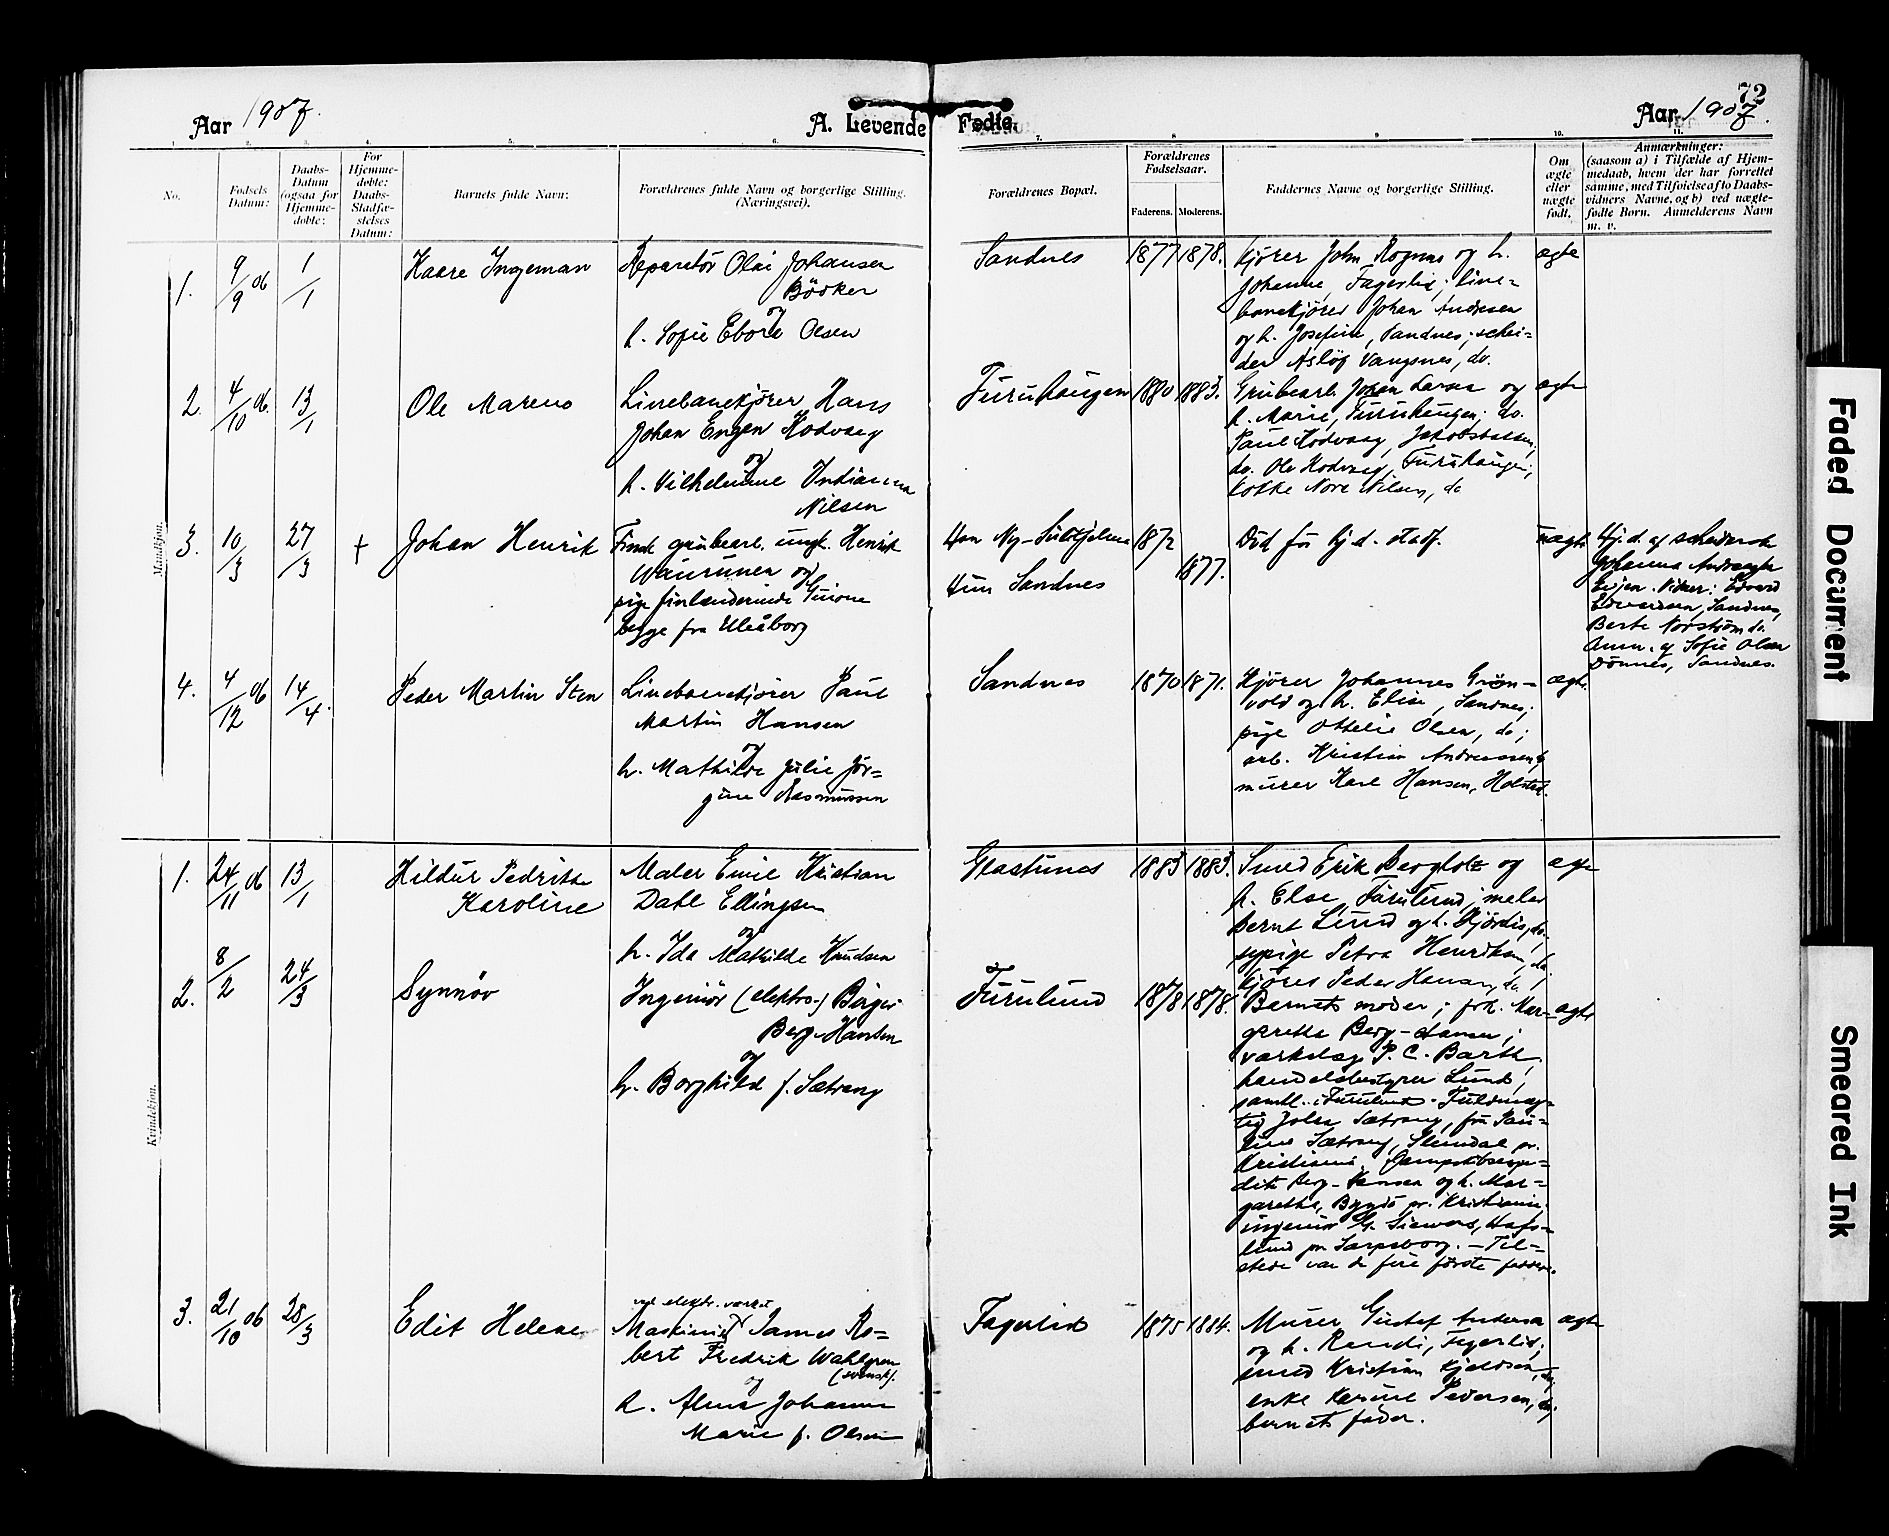 72
Aar 1907.
A. Levende Fødte.
Aar 1907.
1. 2. 3. 4. 5. 6. 7. 8. 9. 10. 11.
No.
Fødsels
Datum:
Daabs-
Datum
(ogsaa for
Hjemme-
døbte:
For
Hjemme-
døbte:
Daabs-
Stadfæ-
stelses
Datum:
Barnets fulde Navn:
Forældrenes fulde Navn og borgerlige Stilling.
(Næringsvei).
Forældrenes Bopæl.
Forældrenes
Fødselsaar.
Faderens. Moderens.
Faddernes Navne og borgerlige Stilling.
Om
ægte
eller
uægte
født.
Anmærkninger:
(saasom a) i Tilfælde af Hjem-
medaab, hvem der har forrettet
samme, med Tilføielse af to Daabs-
vidners Navne, og b) ved uægte-
fødte Børn. Anmelderens Navn
m. v.
Mandkjøn.
1.
9/9 06
1/1
Kaare Ingeman
Reparatør Olai Johansen
Böoker
og
h. Sofie Ebore Olsen
Sandnes
1877 1878.
Kjører John Rognas og h.
Johanne, Fagerlid; line-
banekjører Johan Andersen
og h. Josefine, Sandnes; schei-
der Asløg Vangsnes, do.
ægte
2.
4/10 06.
13/1
Ole Mareno
Linebanekjører Hans
Johan Engen Kodvaag
og
h. Vilhelmine Indianna
Nilsen
Furuhaugen
1880 1883.
Grubearb. Johan Larsa og
h. Marie, Furuhaugen; do.
Paul Kodvaag, Jakobsbakken;
do. Ole Kodvaag, Furuhaugen;
kokke Nore Nilsen, do
ægte
3.
10/3
27/3
+
Johan Henrik
Finsk grubearb. ungk. Henrik
og
pige finlænderinde
begge fra Uleåborg
Han Ny-Sulitjelma
Hun Sandnes
1872
1877.
Död før hj.d. stadf.
uægte
Hj.d. af
Johanna
Edvard
Sandnes,
Berte Norström do.
Anm. af Sofie Olsen
Dönnes, Sandnes.
4.
4/12 06
14/4.
Peder Martin Sten
Linebanekjører Paul
Martin Hansen
og
h. Mathilde Julie Jör-
gine Rasmussen
Sandnes
1870 1871.
Kjører Johannes Grøn-
vold og h. Elise, Sandnes;
pige Ottelie Olsen, do;
arb. Kristian Andreassen,
murer Karl Hansen, Holsted.
ægte
Kvindekjøn.
1.
24/11 06
13/1
Hildur Fedrikke
Karoline
Maler Emil Kristian
Dahl Ellingsen
og
h. Ida Mathilde Knudsen
Glastunes
1883 1883.
Smed Erik Bergholtz og
h. Else, Furulund; maler
Bernt Lund og h. Hjørdis, do.
sypige Petra Henriksen, do;
kjører Peder Hansen, do
ægte
2.
8/2
24/3
Synnöv
Ingeniör (elektro-) Birger
Berg-Hansen
og
h. Borghild f. Sætrang
Furulund
1878 1878.
Barnets moder; frk. Mar-
grethe Berg-Hansen;
værkslæg P. C. Barth
handelsbestyrer Lund,
samtl. i Furulund. Fuldmæg-
tig John Sætrang, fru Pau-
line Sætrang, Slemdal pr.
Kristiania.
Berg-Hansen og h. Mar-
garethe, Bygdö pr. Kristiania.
ingeniør G. Siewers, Hafs-
lund pr. Sarpsborg. - Til-
stede var de fire første faddere.
ægte
3.
21/10 06
28/3
Edit Helene
ved elektr. værket
Maskinist James Ro-
bert Fredrik Wahlgren
(svensk).
og
h. Alma Johanne
Marie f. Olsen
Fagerlid
1875 1884.
Murer Gustaf Andersen
og h. Randi, Fagerlid;
smed Kristian Kjeldsen, do;
enke Karine Pedersen, do;
barnets fader.
ægte
Faded Document
Smeared Ink